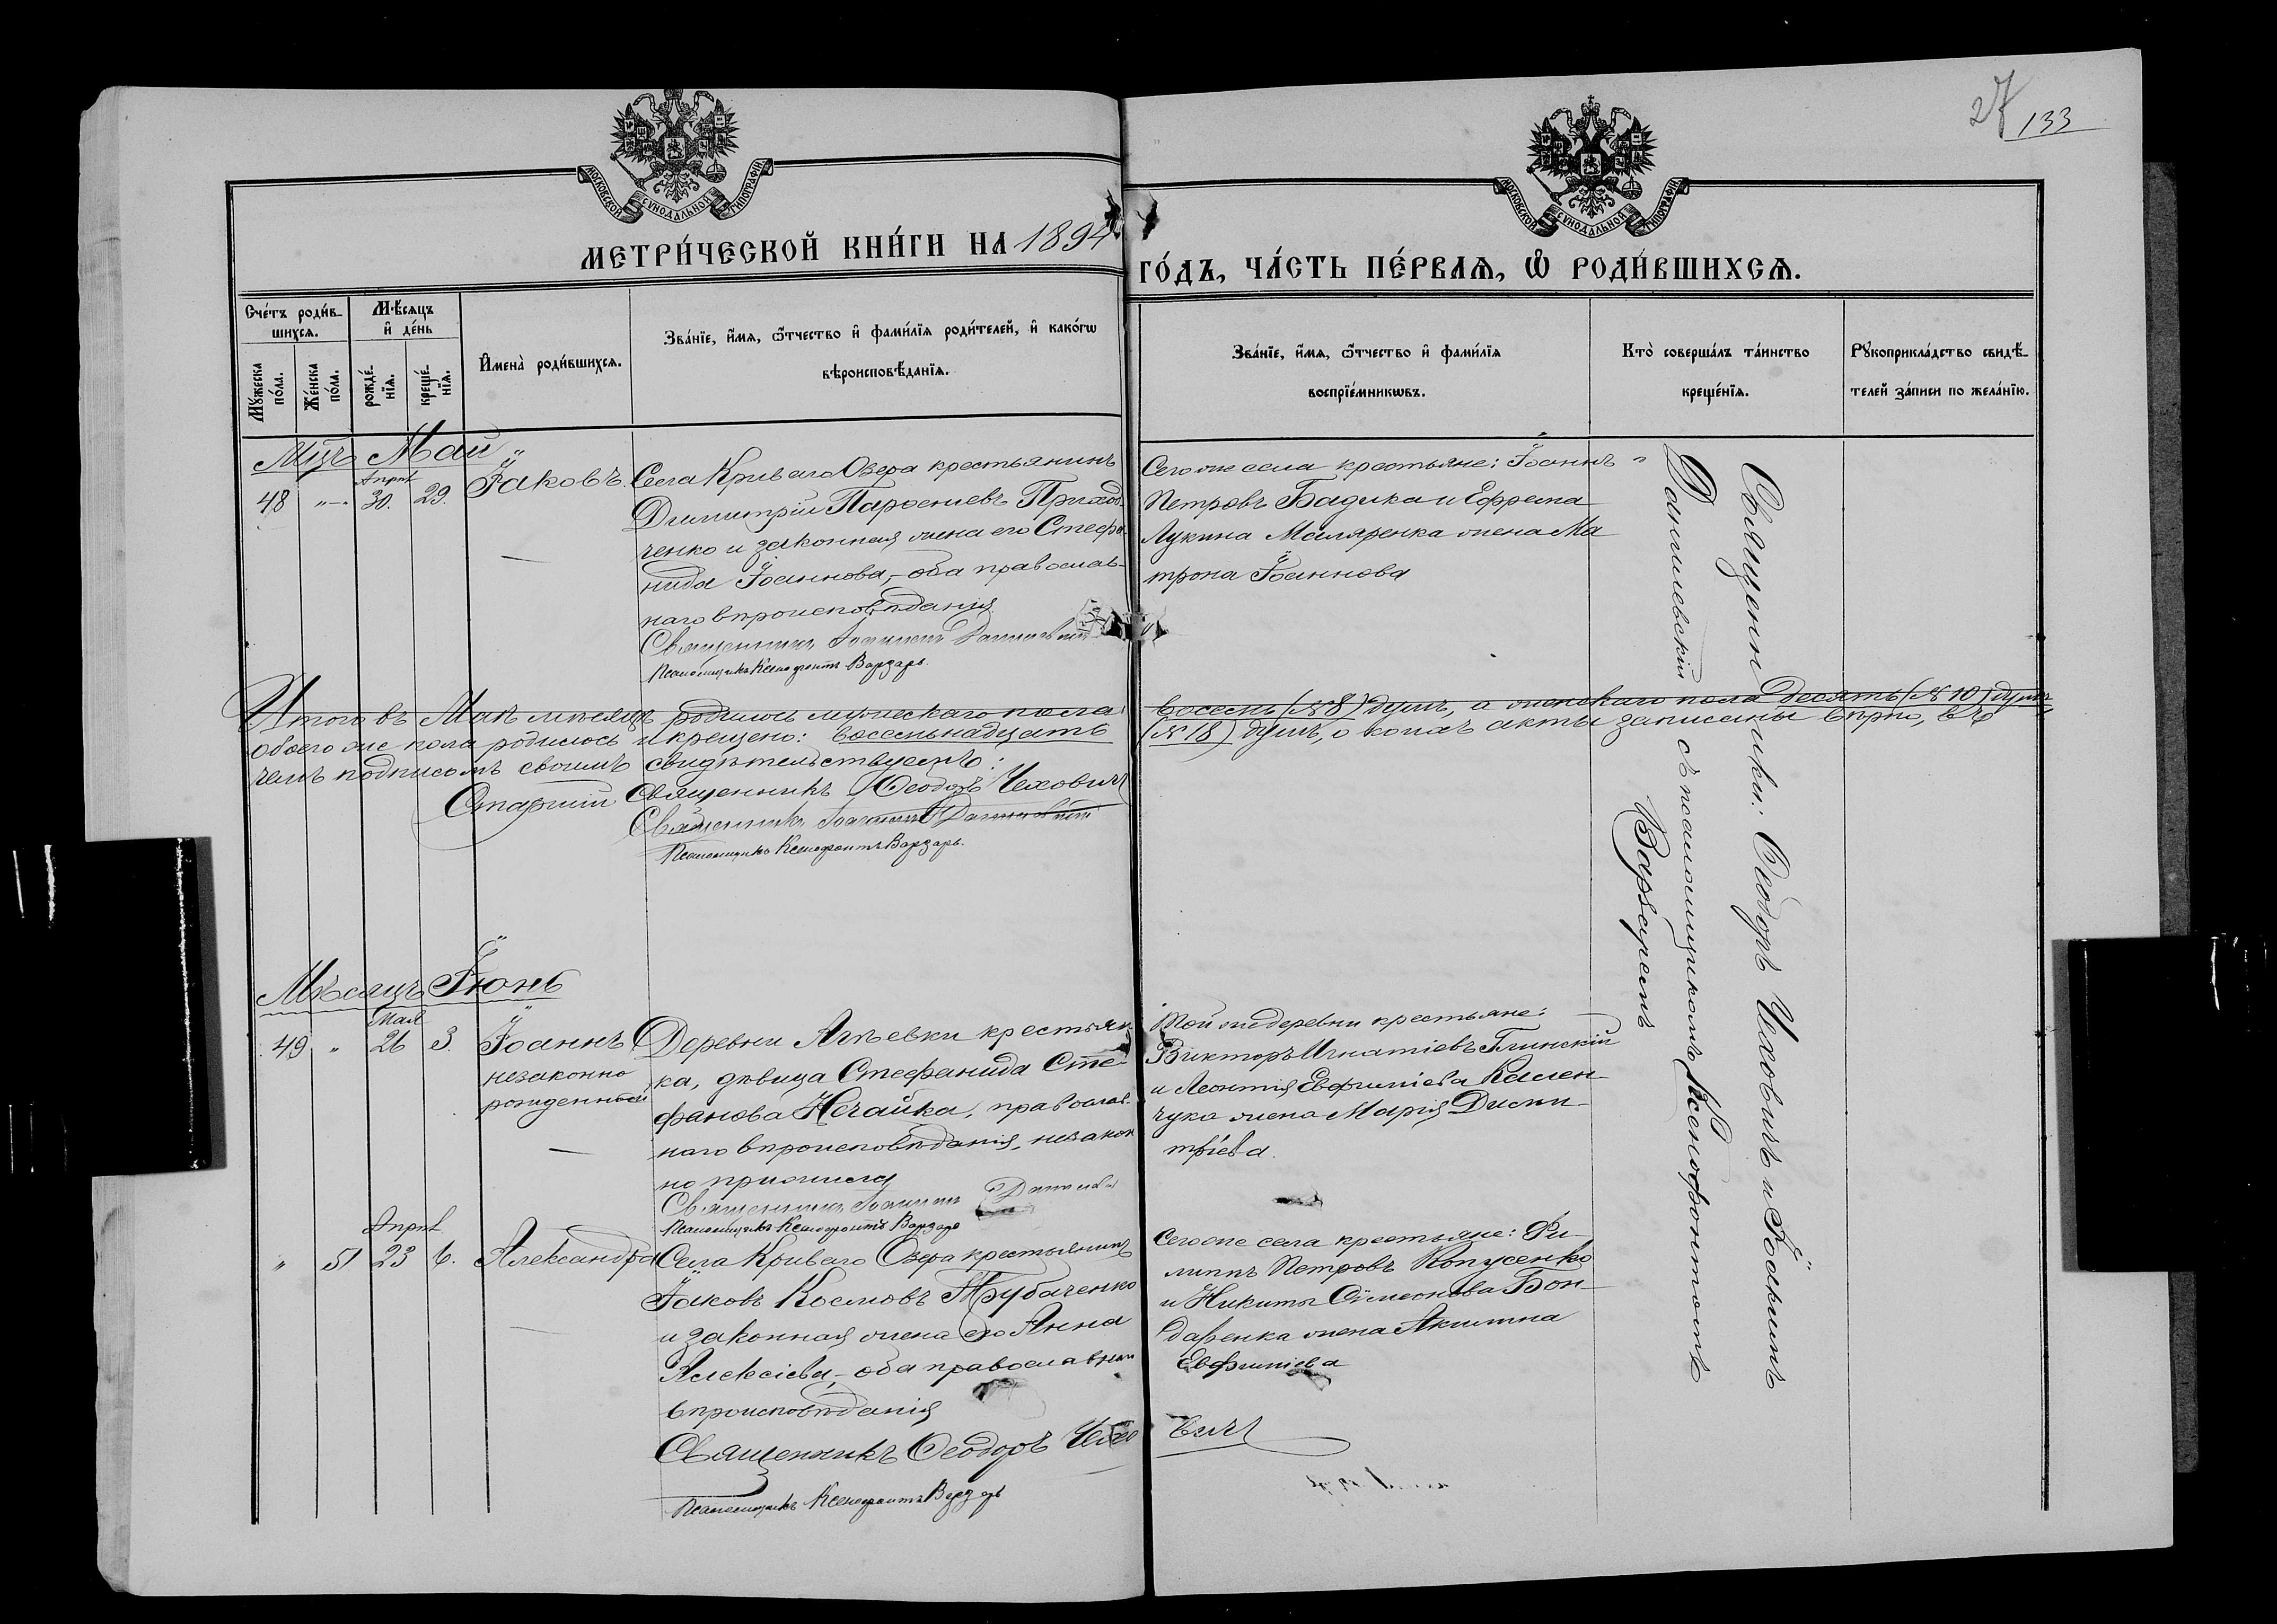 27
133
МОСКОВСКОЙ СѴНОДАЛЬНОЙ ТИПОГРАФІИ
МОСКОВСКОЙ СѴНОДАЛЬНОЙ ТИПОГРАФІИ
МЕТРИ́ЧЕСКОЙ КНИ́ГИ НА 1894
ГО́ДЪ, ЧА́СТЬ ПЕ́РВАѦ, Ѽ РОДИ́ВШИХСѦ.
Сче́тъ роди́в-
шихсѧ.
Мꙋ́жеска по́ла.
Же́нска по́ла.
Мѣ́сѧцъ
и҆ де́нь
рожде́-
нїѧ.
креще́-
нїѧ.
И҆мена̀ роди́вшихсѧ.
Зва́нїе, и҆́мѧ, ѻ҆́тчество и҆ фами́лїѧ роди́телей, и҆ како́гѡ
вѣроисповѣ́данїѧ.
Зва́нїе, и҆́мѧ, ѻ҆́тчество и҆ фами́лїѧ
воспрїе́мникѡвъ.
Кто̀ соверша́лъ та́инство
креще́нїѧ.
Рꙋкоприкла́дство свидѣ́-
телей за́писи по жела́нїю.
Мѣцъ Май
48 " Апрѣ 30. 29. Іаковъ.
Села Криваго Озера крестьянинъ
Димитрій Парѳеніевъ Приход-
ченко и законная жена его Стефа-
нида Іоаннова,- оба православ-
наго вѣроисповѣданія
Священникъ Іоакимъ Данилевскій
Псаломщикъ Ксенофонтъ Варзаръ.
Сего же села крестьяне: Іоаннъ
Петровъ Бадика и Ефрема
Лукина Маляренка жена Ма
трона Іоаннова
Священники: Ѳеодоръ Чеховичъ и Іоакимъ
Данилевскій съ псаломщикомъ Ксенофонтомъ
Варзаремъ
Итого въ Маѣ мѣсяцѣ родилось мужескаго пола восемь (№ 8) душъ, а женскаго пола десять (№ 10) душъ
обоего же пола родилось и крещено: восемьнадцать (№ 18) душъ, о коихъ акты записаны вѣрно, въ
чемъ подписомъ своимъ свидѣтельствуемъ:
Старшій Священникъ Ѳеодоръ Чеховичъ
Священникъ Іоакимъ Данилевскій
Псаломщикъ Ксенофонтъ Варзаръ.
Мѣсяцъ Іюнь
49 " Мая 26 3. Іоаннъ
незаконно
рожденный
Деревни Агѣевки крестьян-
ка, дѣвица Стефанида Сте-
фанова Нечайка, православ-
наго вѣроисповѣданія, незакон
но прижила
Священникъ Іоакимъ Данилев
Псаломщикъ Ксенофонтъ Варзаръ
Той же деревни крестьяне:
Викторъ Игнатіевъ Глинскій
и Леонтія Евфиміева Камен-
чука жена Марія Дими-
тріева.
" 51 Апрѣл 23 6. Александра
Села Криваго Озера крестьянинъ
Іаковъ Космовъ Трубаченко
и законная жена его Анна
Алексіева,- оба православнаго
вѣроисповѣданія
Священникъ Ѳеодоръ Чехо
вичъ
Псаломщикъ Ксенофонтъ Варзаръ
Сего же села крестьяне: Фи-
липпъ Петровъ Копусенко
и Никиты Сімеонова Бон-
даренка жена Акилина
Евфиміева